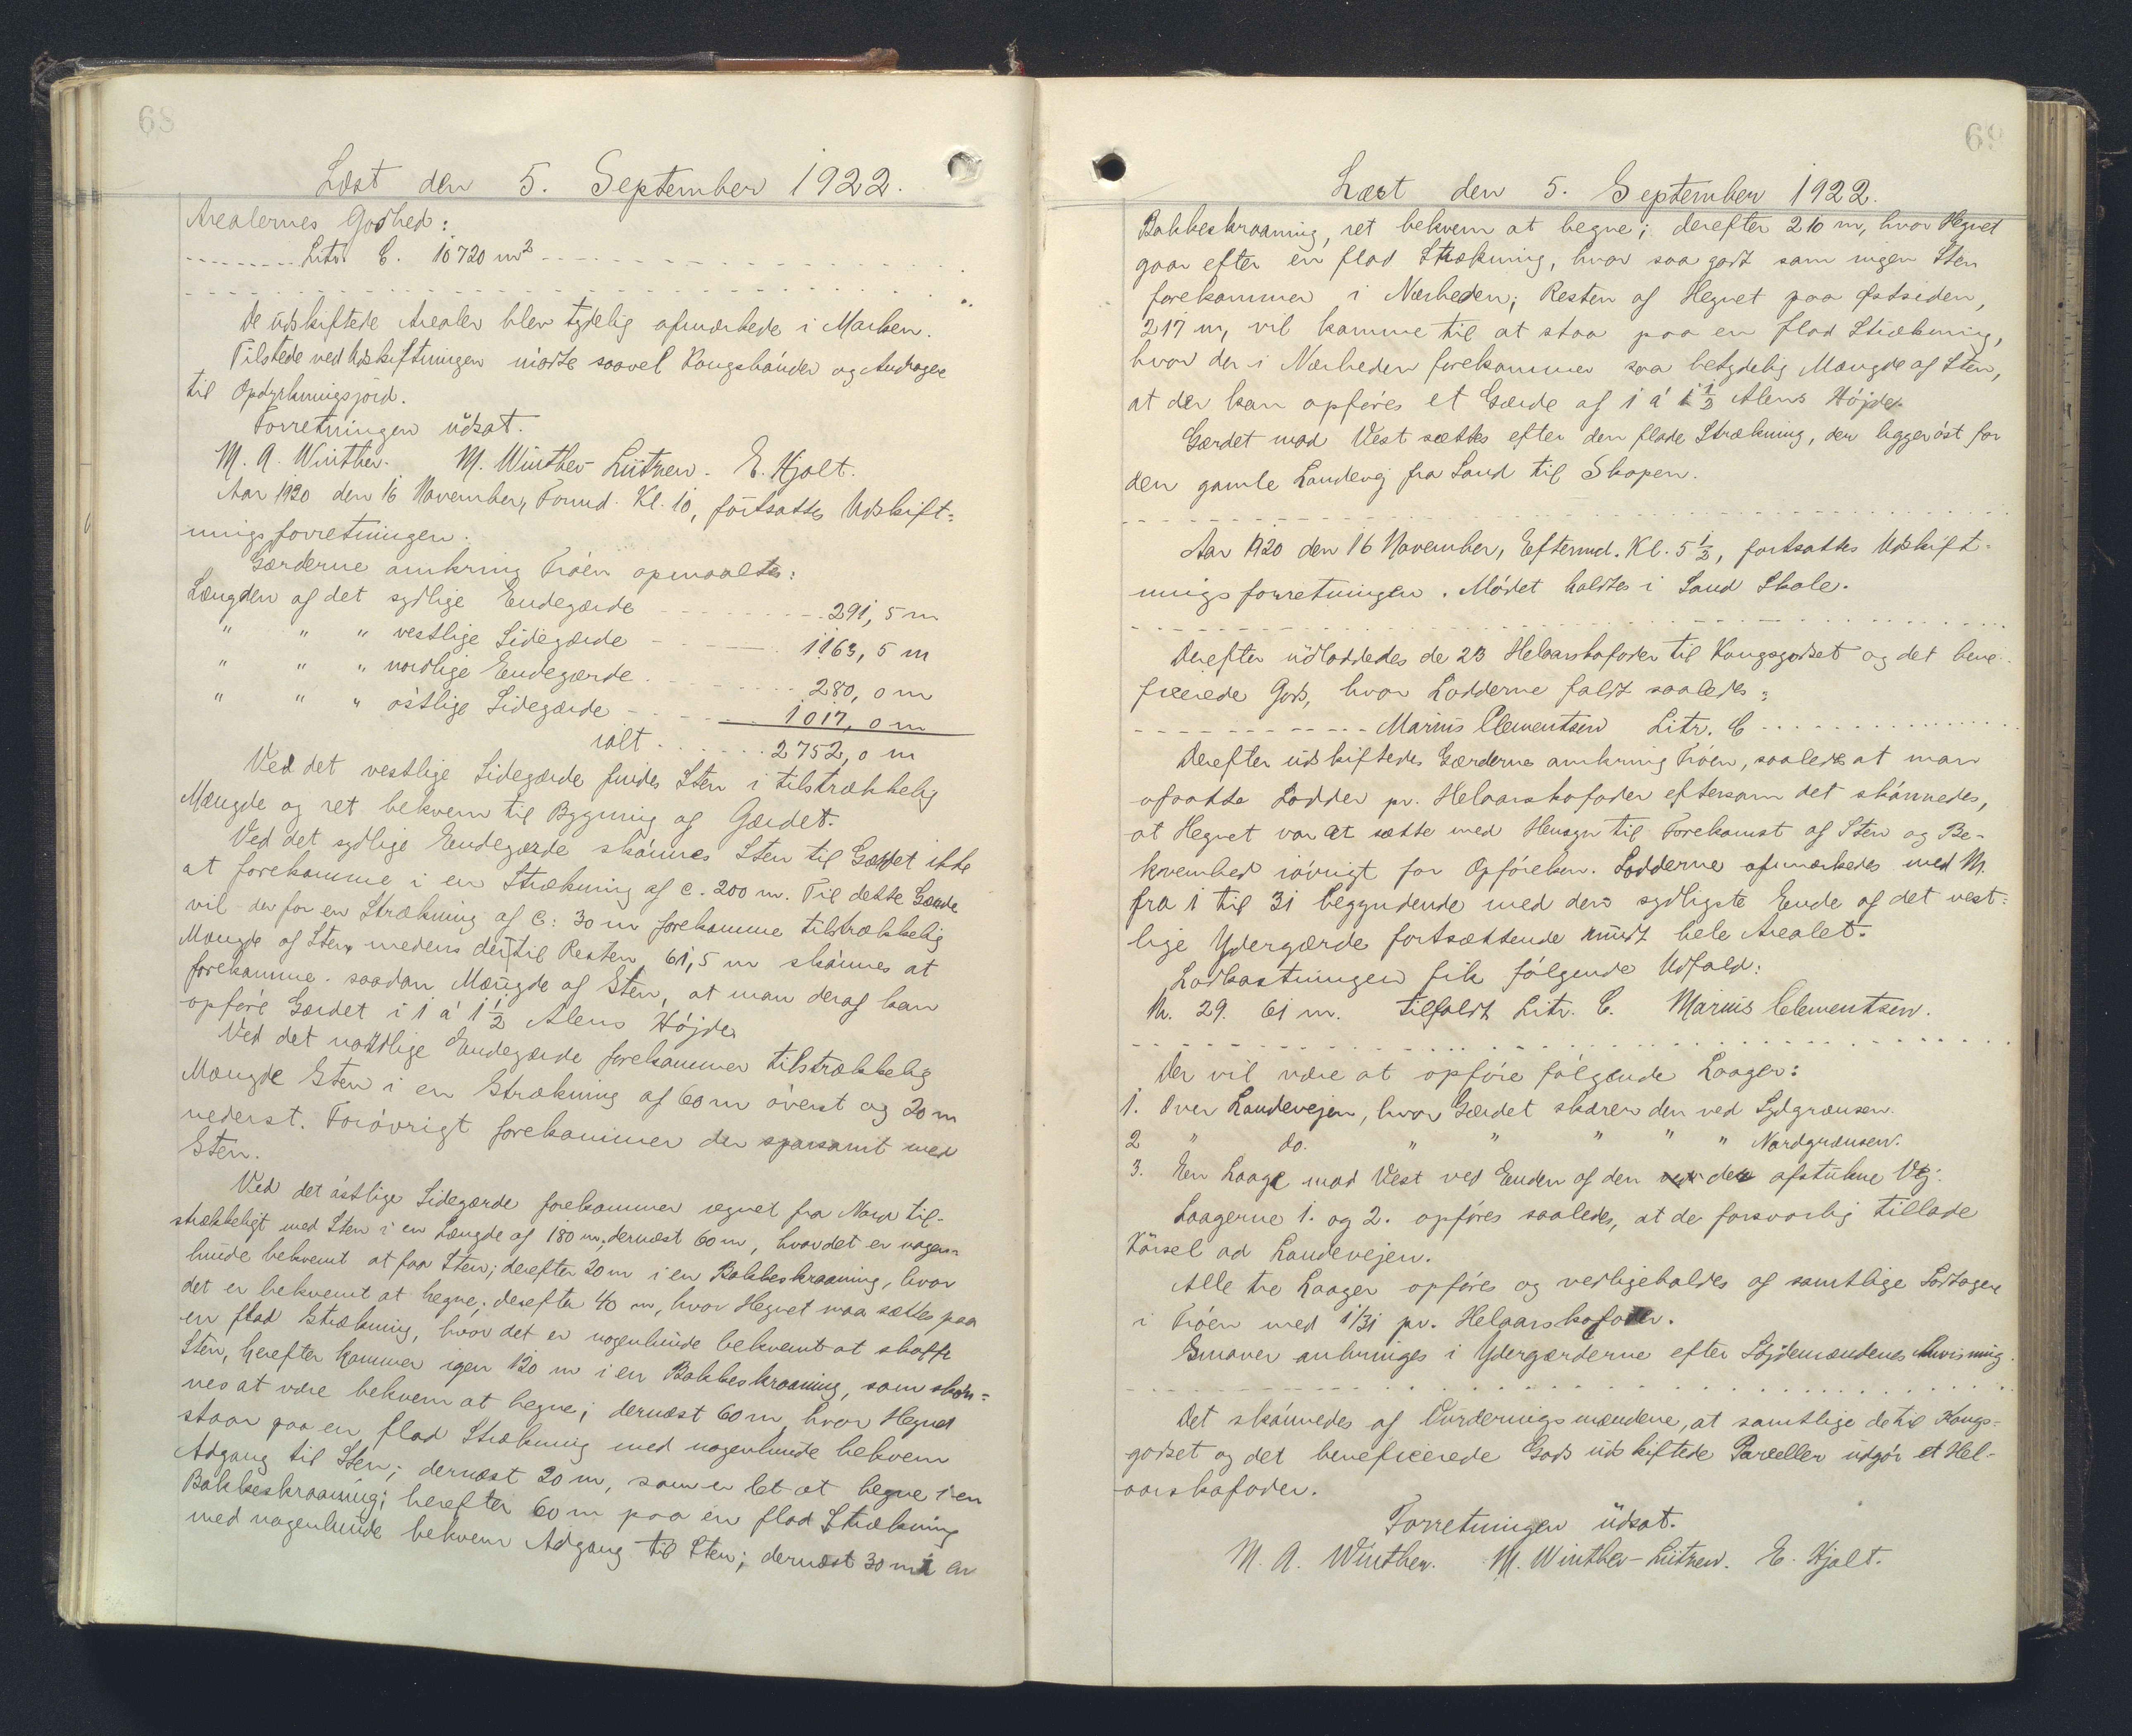 68
Læst den 5. September 1922.
Arealernes Godhed:
Litr. C. 10720 m²
De udskiftede Arealer blev tydelig afmærkede i Marken.
Tilstede ved Udskiftningen mødte saavel Kongsbønder og Andragere
til Opdyrkningsjord.
Forretningen udsat.
M. A. Winther. M. Winther-Lützen. E. Hjalt.
Aar 1920 den 16 November, Formd. Kl. 10, fortsattes Udskift-
ningsforretningen.
Gærderne omkring Trøen opmaaltes:
Længden af det sydlige Endegærde 291,5 m
" " " vestlige Sidegærde 1163,5 m
" " " nordlige Endegærde 280,0 m
" " " østlige Sidegærde 1017,0 m
ialt 2752,0 m
Ved det vestlige Sidegærde findes Sten i tilstrækkelig
Mængde og ret bekvem til Bygning af Gærdet.
Ved det sydlige Endegærde skønnes Sten til Gærdet ikke
at forekomme i en Strækning af c. 200 m. Til dette Gærde
vil der for en Strækning af c: 30 m forekomme tilstrækkelig
Mængde af Sten, medens der til Resten, 61,5 m skønnes at
forekomme saadan Mængde af Sten, at man deraf kan
opføre Gærdet i 1 á 1½ Alens Højde.
Ved det nordlige Endegærde forekommer tilstrækkelig
Mængde Sten i en Strækning af 60 m øverst og 20 m
nederst. Forøvrigt forekommer der sparsomt med
Sten.
Ved det østlige Sidegærde forekommer regnet fra Nord til-
strækkeligt med Sten i en Længde af 180 m; dernæst 60 m, hvor det er nogen-
lunde bekvemt at faa Sten; derefter 20 m i en Bakkeskraaning, hvor
det er bekvemt at hegne; derefter 40 m, hvor Hegnet maa sættes paa
en flad Strækning, hvor det er nogenlunde bekvemt at skaffe
Sten, herefter kommer igen 120 m i en Bakkeskraaning, som skøn-
nes at være bekvem at hegne; dernæst 60 m, hvor Hegnet
staar paa en flad Strækning med nogenlunde bekvem
Adgang til Sten; dernæst 20 m, som er let at hegne i en
Bakkeskraaning; herefter 60 m paa en flad Strækning
med nogenlunde bekvem Adgang til Sten; dernæst 30 m i en
69
Læst den 5. September 1922.
Bakkeskraaning, ret bekvem at hegne; derefter 210 m, hvor Hegnet
gaar efter en flad Strækning, hvor saa godt som ingen Sten
forekommer i Nærheden; Resten af Hegnet paa Østsiden,
217 m, vil komme til at staa paa en flad Strækning,
hvor der i Nærheden forekommer saa betydelig Mængde af Sten,
at der kan opføres et Gærde af 1 á 1½ Alens Højde.
Gærdet mod Vest sættes efter den flade Strækning, der ligger øst for
den gamle Landevej fra Sand til Skopen.
Aar 1920 den 16 November, Eftermd. Kl. 5½, fortsattes Udskift-
ningsforretningen. Mødet holdtes i Sand Skole.
Derefter udloddedes de 23 Helaarskofoder til Kongsgodset og det bene-
ficerede Gods, hvor Lodderne faldt saaledes:
Marius Clementsen Litr. C
Derefter udskiftedes Gærderne omkring Trøen, saaledes at man
afsatte Lodder pr. Helaarskofoder eftersom det skønnedes,
at Hegnet var at sætte med Hensyn til Forekomst af Sten og Be-
kvemhed iøvrigt for Opførelsen. Lodderne afmærkedes med Nr.
fra 1 til 31 begyndende med den sydligste Ende af det vest-
lige Ydergærde fortsættende rundt hele Arealet.
Lodkastningen fik følgende Udfald:
Nr. 29. 61 m. tilfaldt Litr. C. Marius Clementsen.
Der vil være at opføre følgende Laager:
1. Over Landevejen, hvor Gærdet skærer den ved Sydgrænsen.
2 " do. " " " " " Nordgrænsen.
3. En Laage mod Vest ved Enden af den der afstukne Vej.
Laagerne 1. og 2. opføres saaledes, at de forsvarlig tillade
Kørsel ad Landevejen.
Alle tre Laager opføres og vedligeholdes af samtlige Lodtagere
i Trøen med 1/31 pr. Helaarskofoder.
Smaver anbringes i Ydergærderne efter Lodsmændenes Anvisning.
Det skønnedes af Vurderingsmændene, at samtlige de til Kongs-
godset og det beneficerede Gods udskiftede Parceller udgør et Hel-
aarskofoder.
Forretningen udsat.
M. A. Winther. M. Winther-Lützen. E. Hjalt.